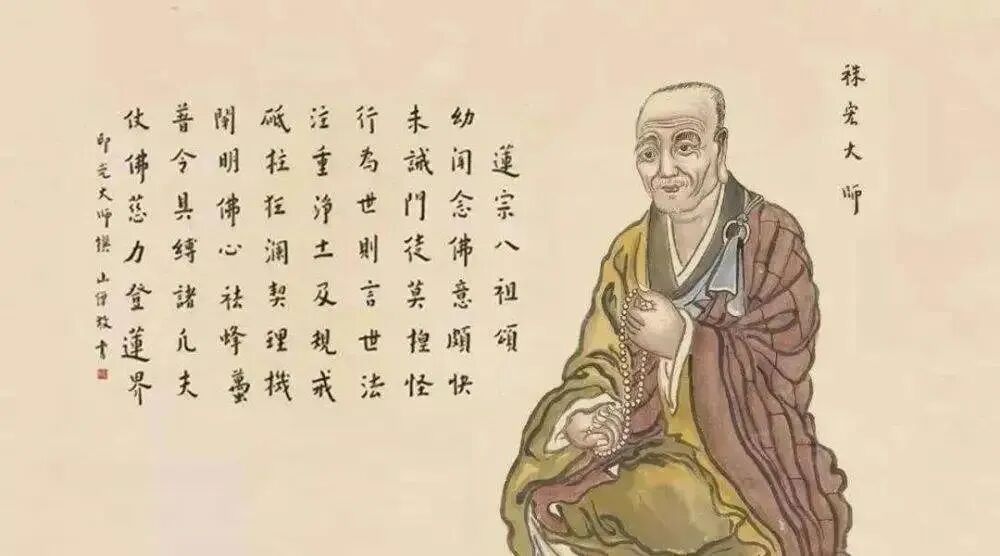 袾宏大師
蓮宗八祖頌
幼聞念佛意頗快
未誡門徒莫惶怪
行為世則言世法
注重淨土及規戒
砥柱狂瀾契理機
闡明佛心祛蜂蠆
普令具縛諸凡夫
仗佛慈力登蓮界
印光大師撰 山僧書